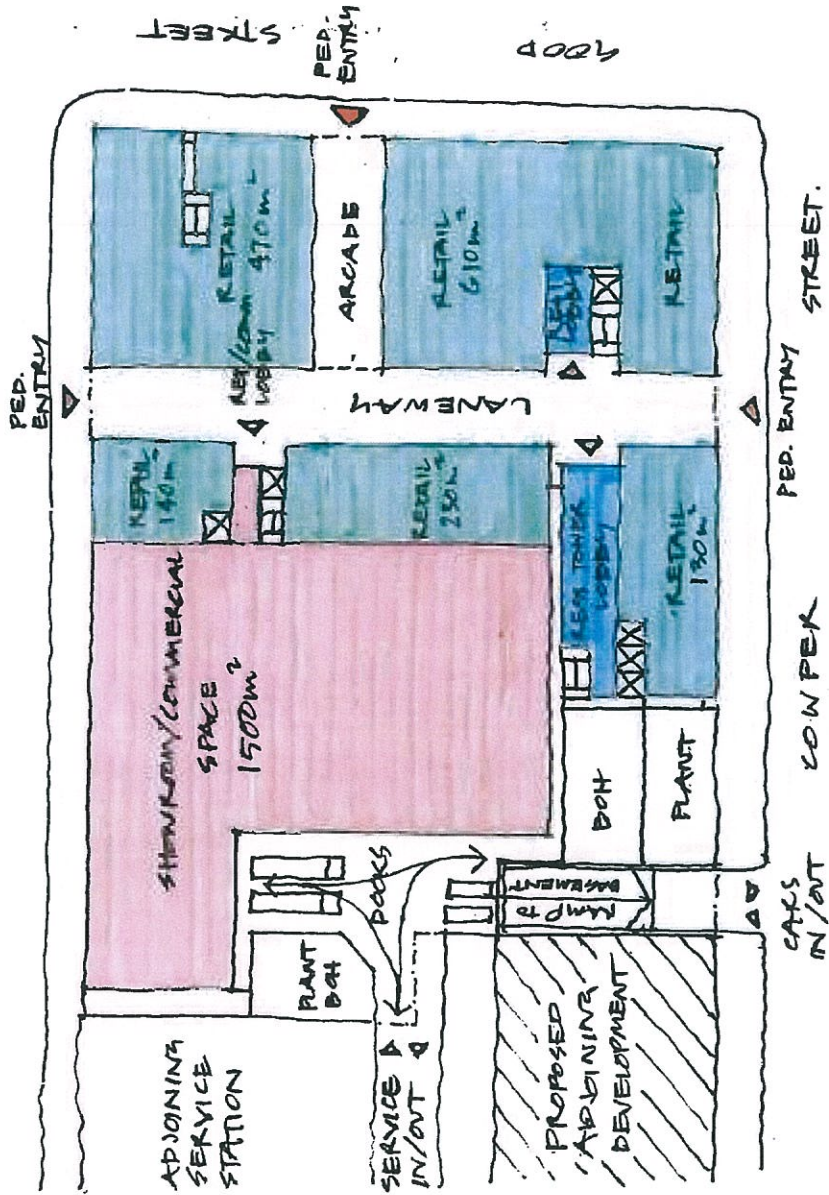 GOOD
STREET
PED.
ENTRY
PED.
ENTRY
RETAIL
470m²
RES/COMM
LOBBY
ARCADE
RETAIL
610m²
RESI
LOBBY
RETAIL
LANEWAY
STREET.
PED. ENTRY
RETAIL
140m²
RETAIL
230m²
RESI TOWER
LOBBY
RETAIL
130m²
SHOWROOM/COMMERCIAL
SPACE
1500m²
COWPER
BOH
PLANT
DOCKS
RAMP TO
BASEMENT
CARS
IN/OUT
PLANT
BOH
ADJOINING
SERVICE
STATION
SERVICE
IN/OUT
PROPOSED
ADJOINING
DEVELOPMENT